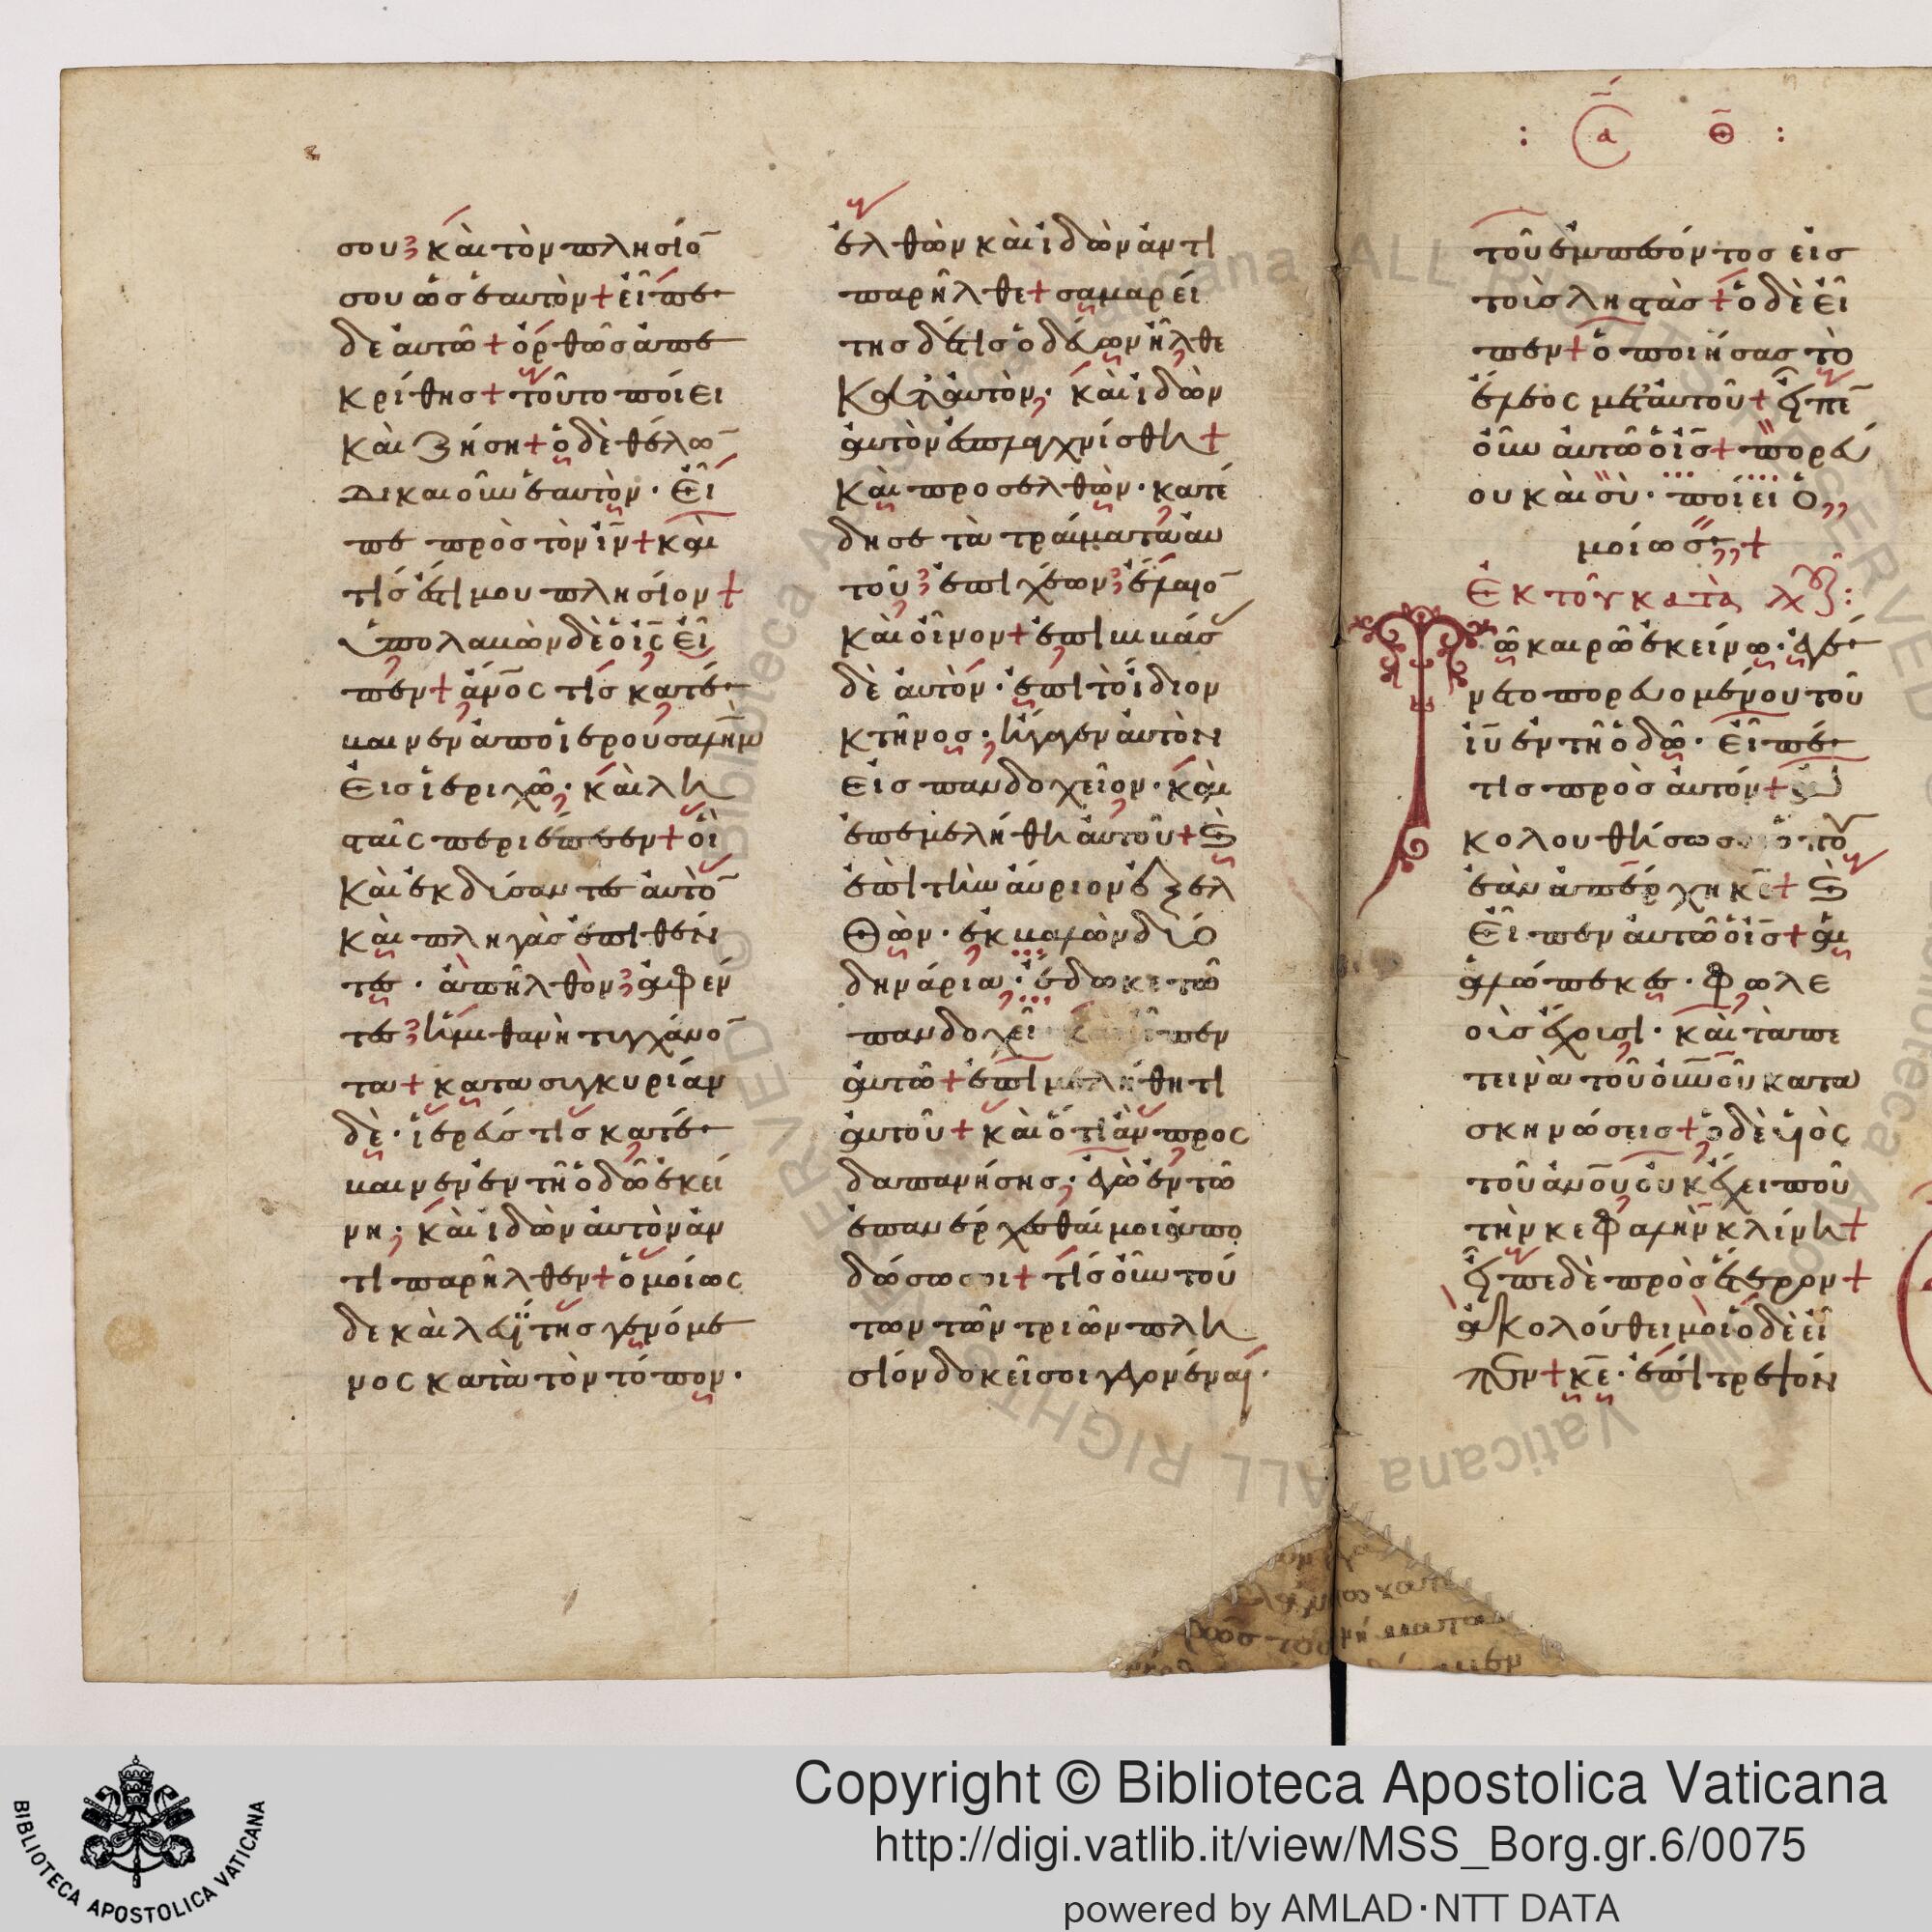 σου καὶ τὸν πλησίο̅
σου ὡσ ἑαυτὸν + εἶπε
δε ἀυτῶ + ὀρθῶσ ἀπε
κρίθησ + τοῦτο ποίει
καὶ ζήση + ὁ δὲ θέλω̅
δικαιοῦν ἑαυτὸν · εἶ
πε πρὸσ τὸν ιν̅ + καὶ
τίσ ἐστί μου πλησίον +
ὑπολαβὼν δὲ ὁ ισ̅ εἶ
πεν + ἄνο̅ς τίσ κατέ
βαινεν ἀπὸ ἱερουσαλὴμ
εἰσ ἱεριχῶ · καὶ λη
σταῖς περιέπεσεν + οἳ
καὶ εκδύσαντεσ ἀυτὸ̅
καὶ πληγὰσ ἐπιθέν
τεσ · ἀπῆλθον ἀφέν
τεσ ἡμιθανῆ τυγχάνο̅
τα + κατα συγκυρίαν
δὲ · ἱερεύσ τισ κατέ
βαινεν ἐν τῆ ὁδῶ ἐκεί
νη ; καὶ ἰδὼν ἀυτὸν ἀν
τιπαρῆλθεν + ὁμοίως
δε καὶ λευΐτησ γενόμε
νος κατὰ τὸν τόπον ·
ἐλθὼν καὶ ἰδὼν ἀντι
παρῆλθε + σαμαρεί
τησ δέ τισ ὁδεύων ἦλθε
κατ' ἀυτὸν · καὶ ἰδὼν
ἀυτὸν ἐσπλαγχνίσθη +
καὶ προσελθὼν · κατέ
δησε τὰ τραύματα ἀυ
τοῦ ἐπιχέων ἔλαιο̅
καὶ οἶνον + ἐπιβιβάσ
δὲ ἀυτὸν · ἐπὶ τὸ ἴδιον
κτῆνοσ · ἤγαγεν ἀυτὸν
εἰσ πανδοχεῖον · καὶ
ἐπεμελήθη ἀυτοῦ + καὶ
ἐπὶ τὴν ἀύριον ἐξελ
θὼν · ἐκβαλὼν δύο
δηνάρια · ἔδωκε τῶ
πανδοχεῖ εἶπεν
ἀυτῶ + ἐπιμελήθητι
ἀυτοῦ + καὶ ὅτι ἂν προς
δαπανήσησ · ἐγὼ ἐν τῶ
ἐπανέρχεσθαί με ἀπο
δώσω σοι + τίσ οὖν τού
των τῶν τριῶν πλη
σίον δοκεῖ σοι γεγονέναι ·
: α θ̅ :
τοῦ ἐμπεσόντοσ εἰσ
τοὺσ ληστάσ + ὁ δὲ εἶ
πεν + ὁ ποιήσασ τὸ
ἔλεος μετ' ἀυτοῦ + εἶπε̅
οὖν ἀυτῶ ὁ ισ̅ + πορεύ
ου καὶ σὺ · ποίει ὁ
μοίωσ +
Ἐκ τοῦ κατὰ λουκ :
Τῶ καιρῶ ἐκείνω · ἐγέ
νετο πορευομένου τοῦ
ιυ̅ ἐν τῆ ὁδῶ · εἶπέ
τισ πρὸσ ἀυτόν +
κολουθήσω σοι ὅπο̅
ἐὰν ἀπέρχη κε̅ + καὶ
εἶπεν ἀυτῶ ὁ ισ̅ + αἱ
ἀλώπεκεσ · φωλε
οὺσ ἔχουσι · καὶ τὰ πε
τεινὰ τοῦ ουν̅ου κατα
σκηνώσεισ + ὁ δὲ υἱὸς
τοῦ ἀνο̅υ οὐκ ἔχει ποῦ
τὴν κεφαλὴν κλίνη +
εἶπε δὲ πρὸσ ἕτερον +
ἀκολούθει μοι ὁ δὲ εἶ
πεν + κε̅ · ἐπίτρεψόν
Copyright © Biblioteca Apostolica Vaticana
http://digi.vatlib.it/view/MSS_Borg.gr.6/0075
powered by AMLAD·NTT DATA
BIBLIOTECA APOSTOLICA VATICANA